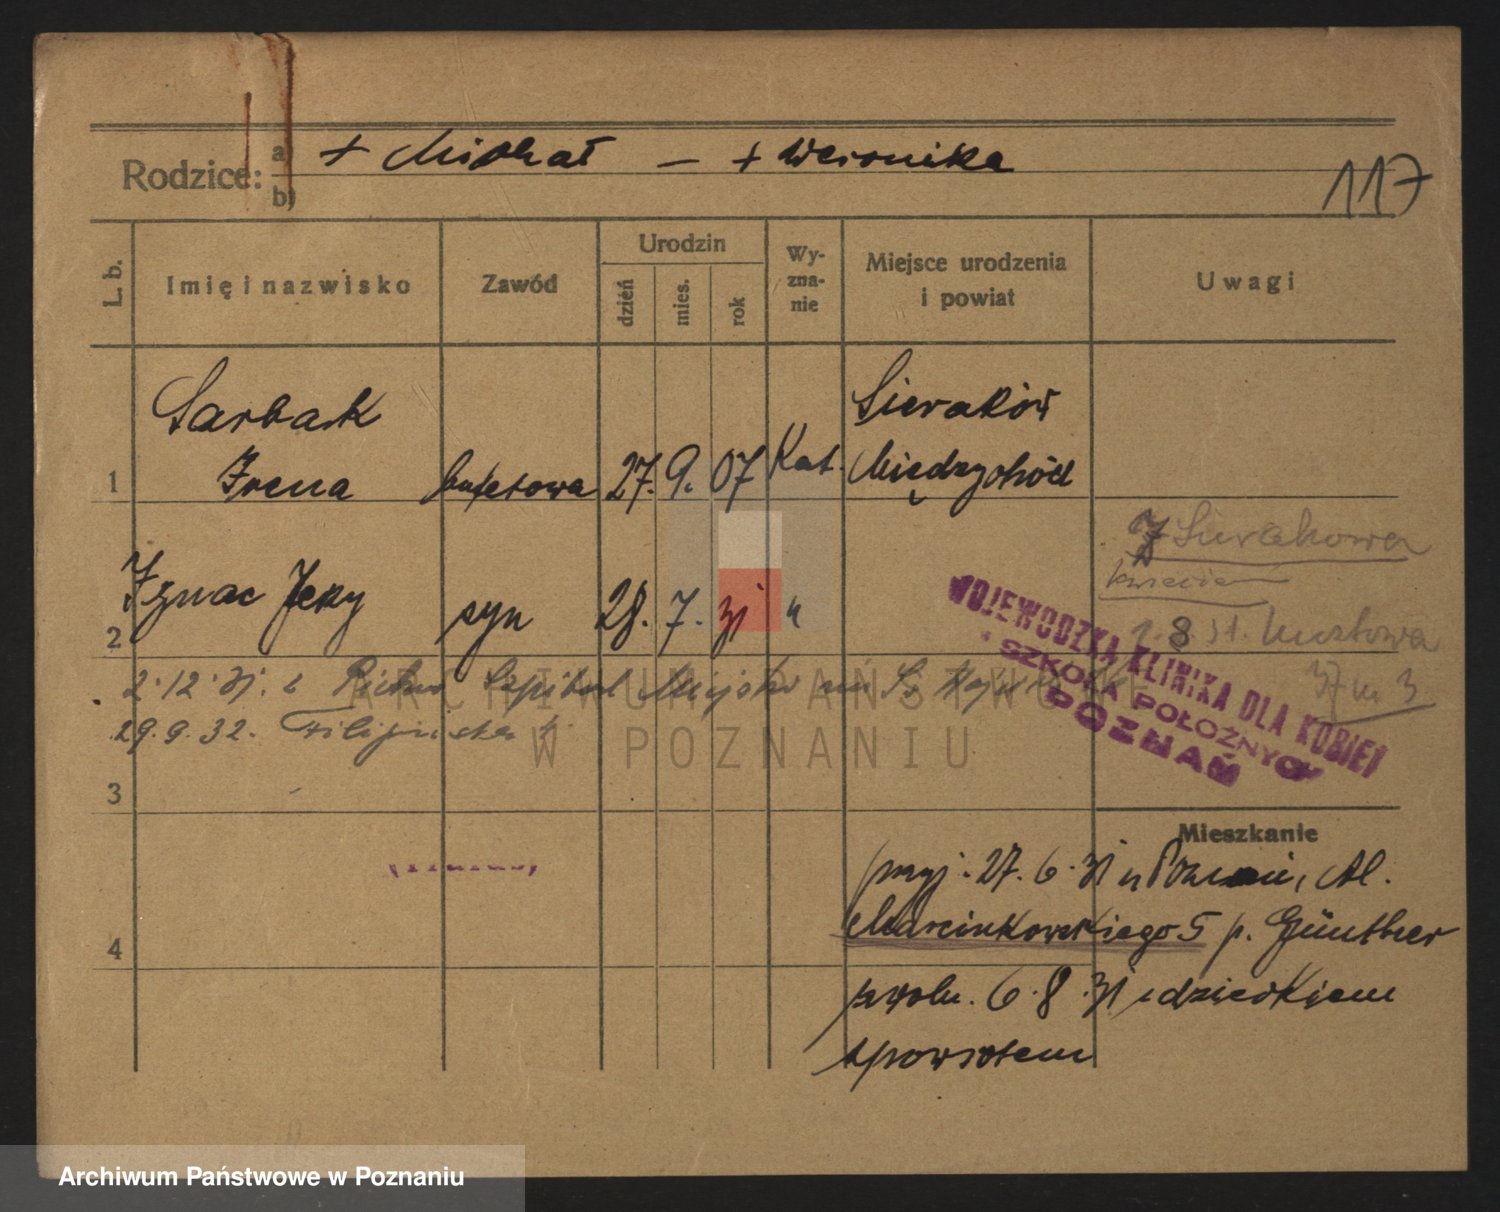 Rodzice: a) + Michał — + Weronika
b)
117
L. b.
Imię i nazwisko
Zawód
Urodzin
dzień
mies.
rok
Wy-
zna-
nie
Miejsce urodzenia
i powiat
Uwagi
Sarbak
Sieraków
1 Irena bufetowa 27. 9. 07 Kat. Międzychód
Z Sierakowa
Ignac Jerzy
2 syn 28. 7. 31 "
WOJEWÓDZKA KLINIKA DLA KOBIET
I SZKOŁA POŁOŻNYCH
POZNAŃ
37 m 3
2.12.31. Szpital
29.9.32.
3
Mieszkanie
przyj. 27. 6. 31 Al.
4 Marcinkowskiego 5 p. Günther
zwoln. 6. 8. 31 z dzieckiem
z powrotem
ARCHIWUM PAŃSTWOWE
W POZNANIU
Archiwum Państwowe w Poznaniu